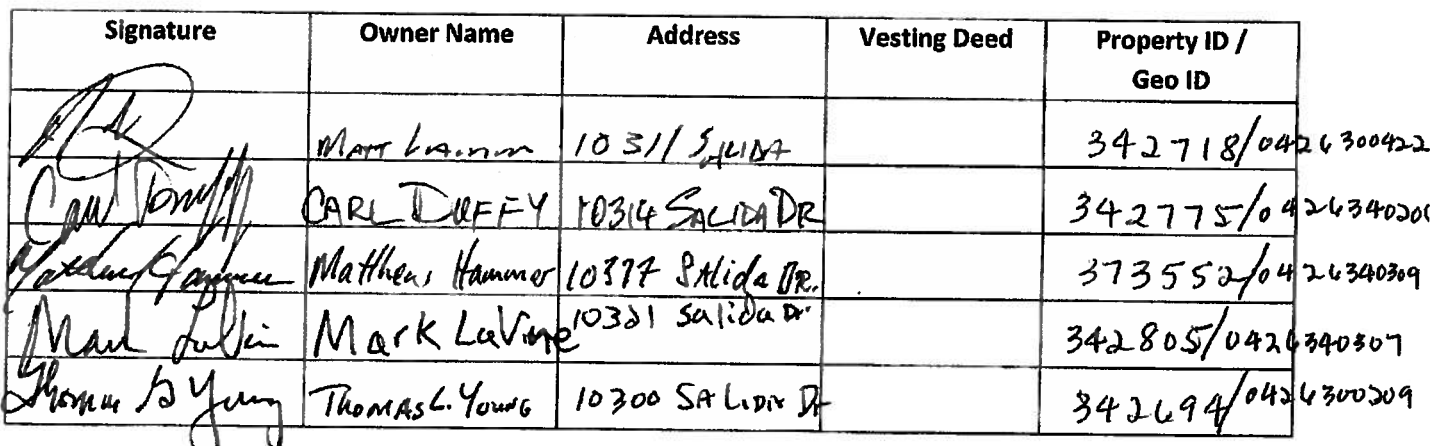 Signature Owner Name Address Vesting Deed Property ID /
Geo ID
Matt 10311 Salida 342718/0426300422
Carl Duffy CARL DUFFY 10314 SALIDA DR 342775/042634020
Matthew Hammer Matthew Hammer 10317 Salida DR. 373552/0426340309
Mark LaVine Mark LaVine 10321 Salida Dr 342805/0426340307
Thomas G Young THOMAS L. YOUNG 10300 SALIDA Dr 342694/0426300209